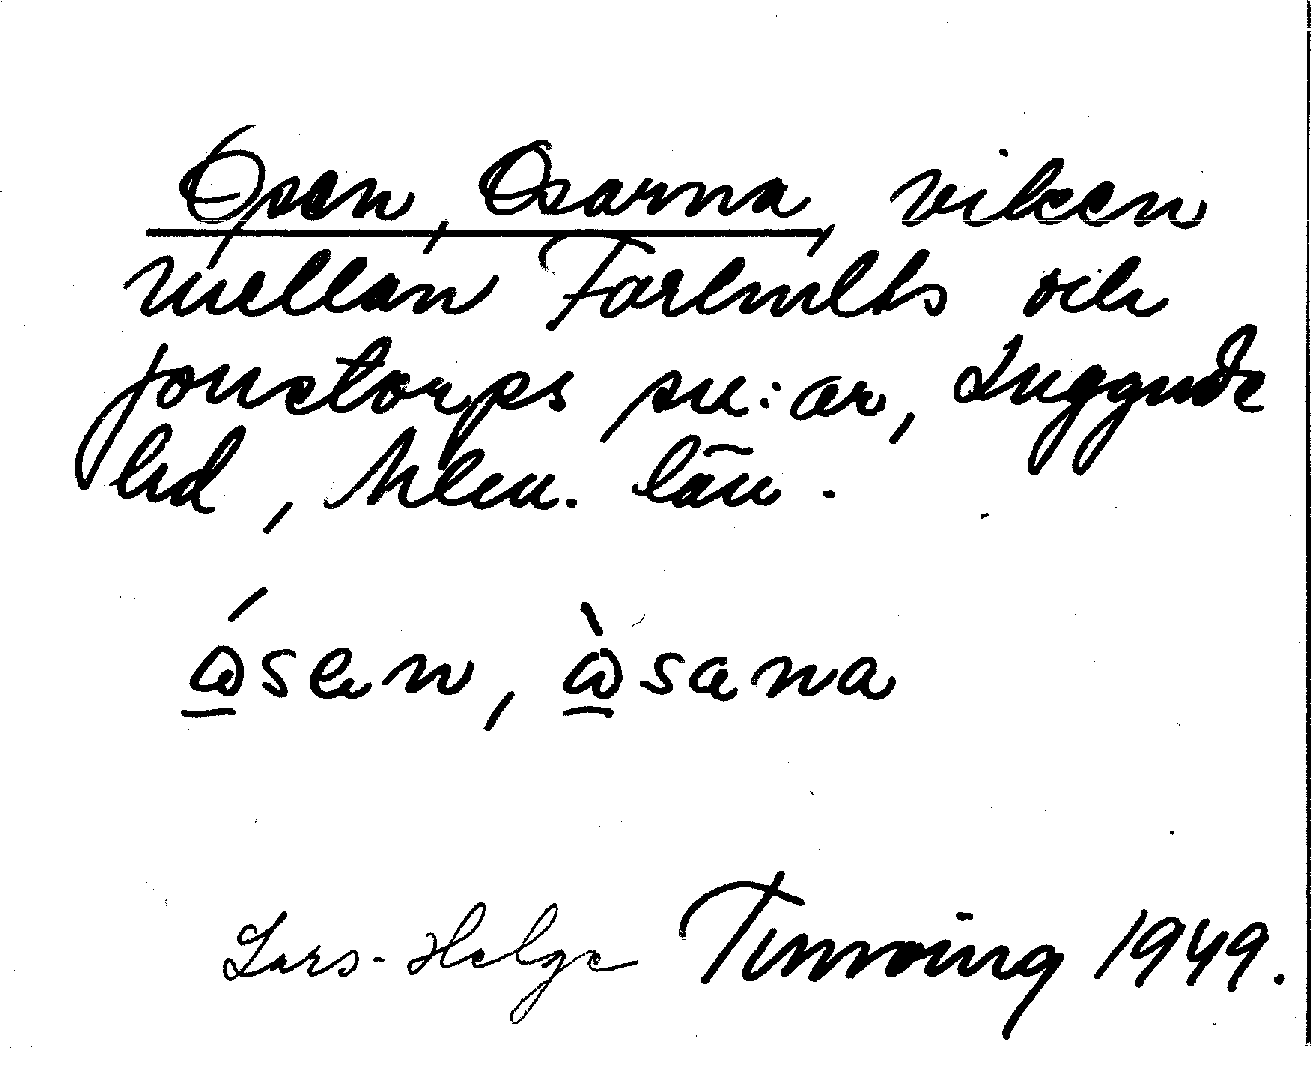 Osen, Osarna, viken
mellan Farhults och
Jonstorps sn:ar, Luggude
hd, Mlm. län.
ωsen, ωsana
Lars-Helge 1949.